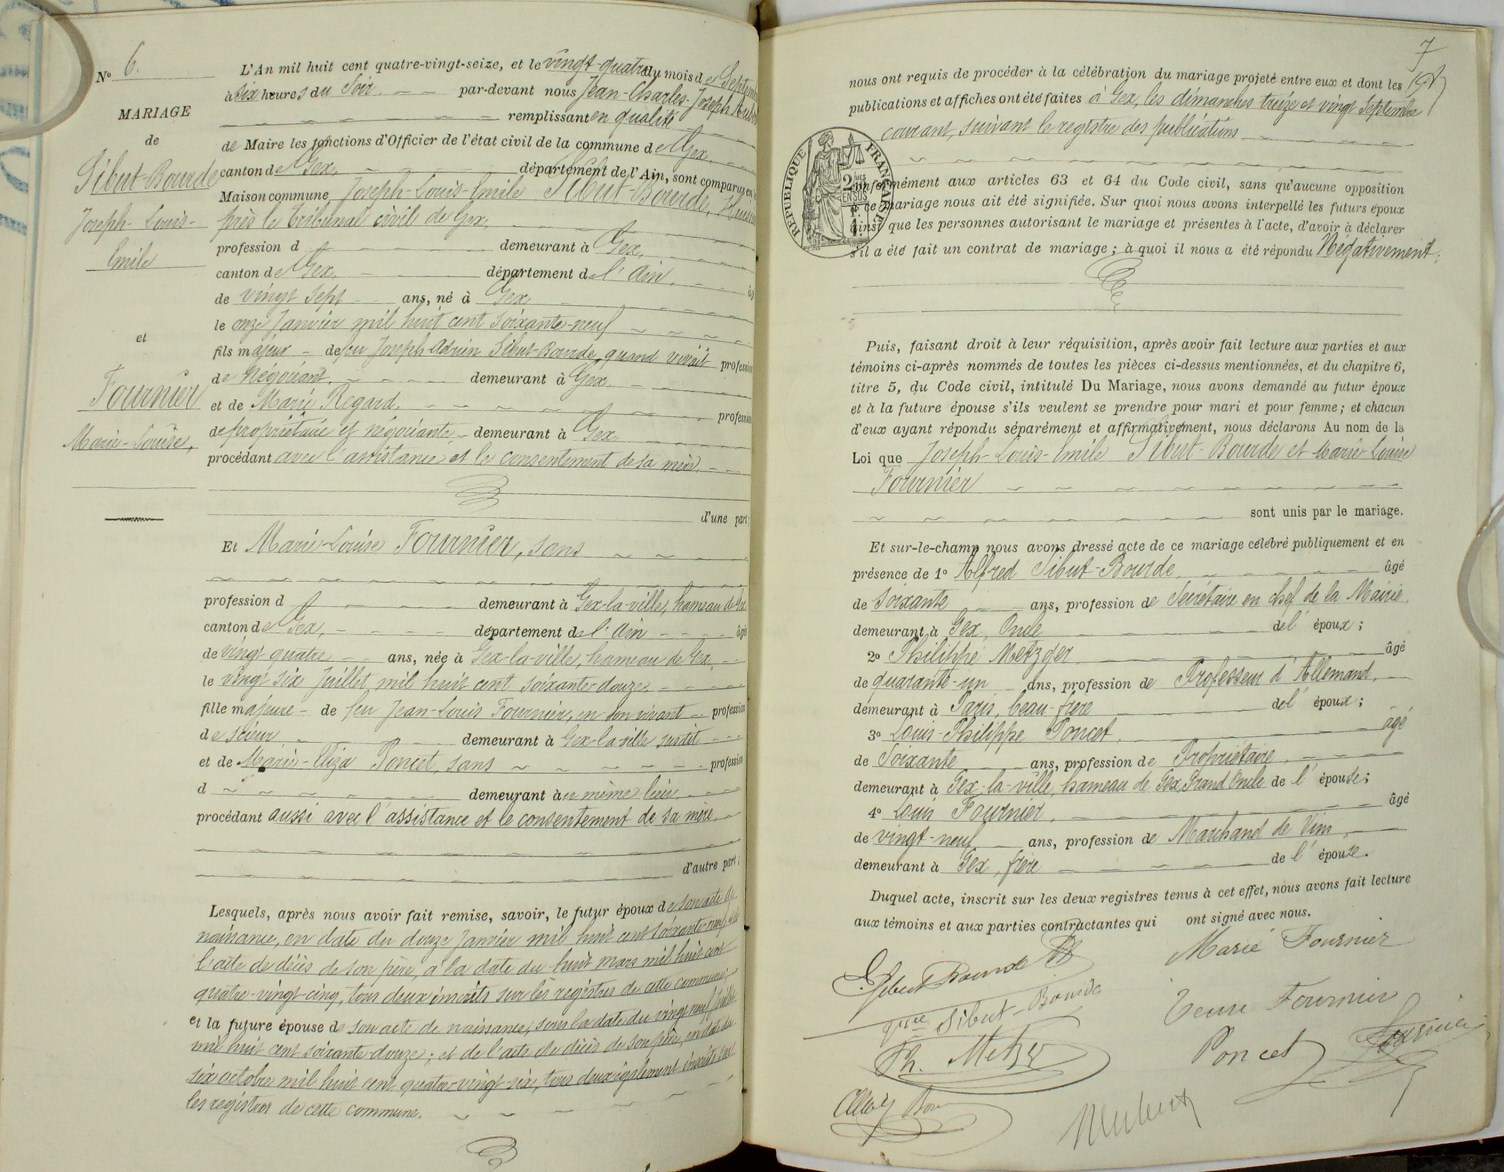 N° 6.
MARIAGE
de
Sibut-Bourde
Joseph-Louis-
Emile
et
Fournier
Marie-Louise,
L'An mil huit cent quatre-vingt-seize, et le vingt-quatre du mois de Septembre
à six heures du Soir par-devant nous Jean-Charles-Joseph
remplissant en qualité
de Maire les fonctions d'Officier de l'état civil de la commune de Gex,
canton de Gex, département de l'Ain, sont comparus en
Maison commune Joseph-Louis-Emile Sibut-Bourde,
près le Tribunal civil de Gex,
profession d demeurant à Gex,
canton de Gex, département de l'Ain,
de vingt sept ans, né à Gex
le onze Janvier mil huit cent soixante-neuf
fils majeur de feu Joseph-Adrien Sibut-Bourde, quand vivait profession
de Négociant, demeurant à Gex
et de Marie Rigard, profession
de propriétaire et négociante demeurant à Gex
procédant avec l'assistance et le consentement de sa mère
d'une part
Et Marie-Louise Fournier, sans
profession d demeurant à Gex-la-ville, hameau de Gex
canton de Gex, département de l'Ain âgée
de vingt quatre ans, née à Gex-la-ville, hameau de Gex,
le vingt six Juillet mil huit cent soixante-douze,
fille majeure de feu Jean-Louis Fournier, en son vivant profession
de scieur demeurant à Gex-la-ville susdit
et de Marie-Eliza Poncet, sans profession
d demeurant à même lieu
procédant aussi avec l'assistance et le consentement de sa mère
d'autre part;
Lesquels, après nous avoir fait remise, savoir, le futur époux de son acte de
naissance, en date du douze Janvier mil huit cent soixante-neuf et de
l'acte de décès de son père, à la date du huit mars mil huit cent
quatre-vingt-cinq, tous deux inscrits sur les registres de cette commune;
et la future épouse de son acte de naissance, sous la date du vingt neuf Juillet
mil huit cent soixante-douze; et de l'acte de décès de son père, en date du
six octobre mil huit cent quatre-vingt-six, tous deux également inscrits sur
les registres de cette commune.
7
nous ont requis de procéder à la célébration du mariage projeté entre eux et dont les
publications et affiches ont été faites à Gex, les dimanches treize et vingt Septembre
courant, suivant le registre des publications
RÉPUBLIQUE FRANÇAISE
conformément aux articles 63 et 64 du Code civil, sans qu'aucune opposition
à ce mariage nous ait été signifiée. Sur quoi nous avons interpellé les futurs époux
ainsi que les personnes autorisant le mariage et présentes à l'acte, d'avoir à déclarer
s'il a été fait un contrat de mariage; à quoi il nous a été répondu Négativement;
Puis, faisant droit à leur réquisition, après avoir fait lecture aux parties et aux
témoins ci-après nommés de toutes les pièces ci-dessus mentionnées, et du chapitre 6,
titre 5, du Code civil, intitulé Du Mariage, nous avons demandé au futur époux
et à la future épouse s'ils veulent se prendre pour mari et pour femme; et chacun
d'eux ayant répondu séparément et affirmativement, nous déclarons Au nom de la
Loi que Joseph-Louis-Emile Sibut-Bourde et Marie-Louise
Fournier
sont unis par le mariage.
Et sur-le-champ nous avons dressé acte de ce mariage célébré publiquement et en
présence de 1° Alfred Sibut-Bourde âgé
de Soixante ans, profession de Secrétaire en chef de la Mairie,
demeurant à Gex, Oncle de l'époux;
2° Philippe Metzger âgé
de quarante-un ans, profession de Professeur d'Allemand,
demeurant à Paris, beau-frère de l'époux;
3° Louis-Philippe Poncet, âgé
de Soixante ans, profession de Propriétaire,
demeurant à Gex-la-ville, hameau de Gex, Grand Oncle de l'épouse;
4° Louis Fournier, âgé
de vingt-neuf ans, profession de Marchand de Vin,
demeurant à Gex, frère de l'épouse.
Duquel acte, inscrit sur les deux registres tenus à cet effet, nous avons fait lecture
aux témoins et aux parties contractantes qui ont signé avec nous.
E. Sibut Bourde
Marie Fournier
Sibut-Bourde
Fournier
Ph. Metzger
Poncet
Fournier